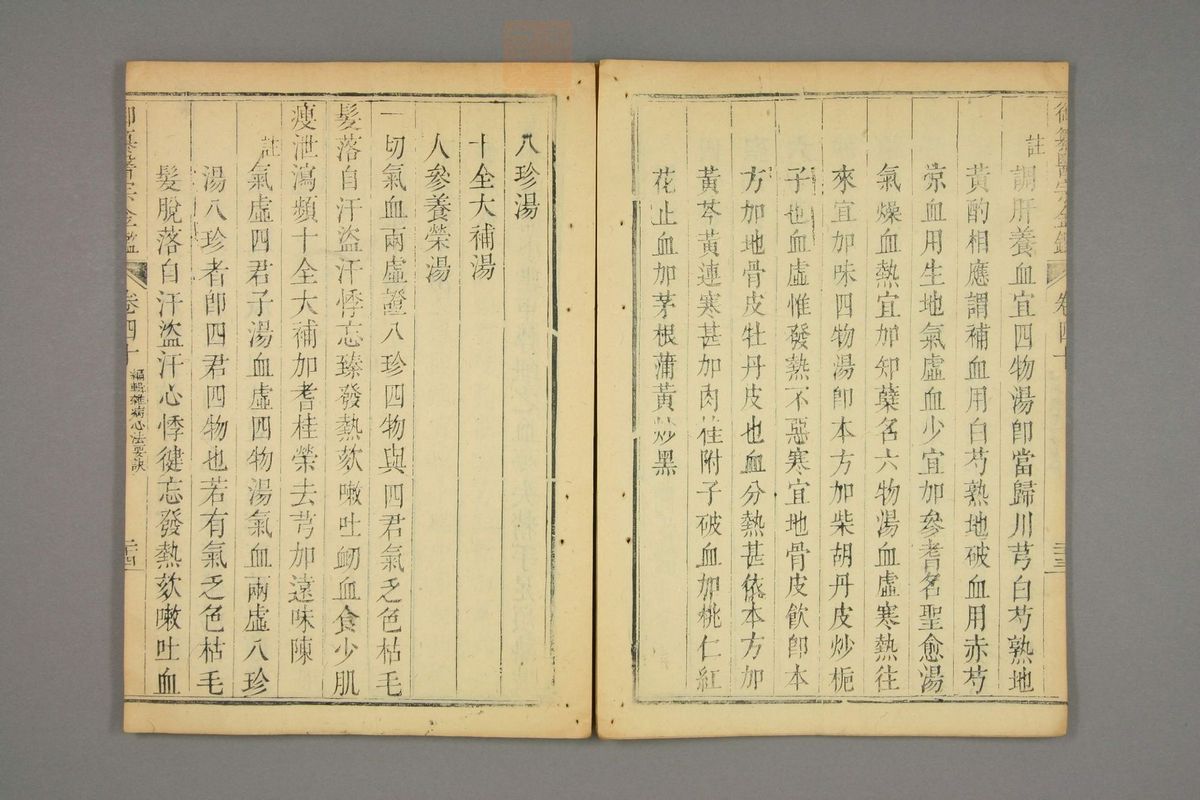 御纂醫宗金鑑 卷四十 三三
註
調肝養血宜四物湯卽當歸川芎白芍熟地
黃酌相應謂補血用白芍熟地破血用赤芍
凉血用生地氣虛血少宜加參耆名聖愈湯
氣燥血熱宜加知蘗名六物湯血虛寒熱往
來宜加味四物湯卽本方加柴胡丹皮炒梔
子也血虛惟發熱不惡寒宜地骨皮飮卽本
方加地骨皮牡丹皮也血分熱甚依本方加
黃芩黃連寒甚加肉桂附子破血加桃仁紅
花止血加茅根蒲黃炒黑
八珍湯
十全大補湯
人參養榮湯
一切氣血兩虛證八珍四物與四君氣乏色枯毛
髮落自汗盜汗悸忘臻發熱欬嗽吐衂血食少肌
瘦泄瀉頻十全大補加耆桂榮去芎加遠味陳
註
氣虛四君子湯血虛四物湯氣血兩虛八珍
湯八珍者卽四君四物也若有氣乏色枯毛
髮脫落自汗盜汗心悸健忘發熱欬嗽吐血
御纂醫宗金鑑 卷四十 編輯雜病心法要訣